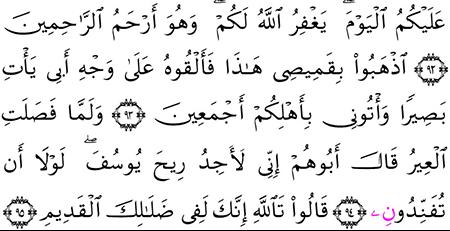 عَلَيْكُمُ ٱلْيَوْمَ ۖ يَغْفِرُ ٱللَّهُ لَكُمْ ۖ وَهُوَ أَرْحَمُ ٱلرَّٰحِمِينَ
﴿٩٢﴾ ٱذْهَبُوا۟ بِقَمِيصِى هَٰذَا فَأَلْقُوهُ عَلَىٰ وَجْهِ أَبِى يَأْتِ
بَصِيرًا وَأْتُونِى بِأَهْلِكُمْ أَجْمَعِينَ ﴿٩٣﴾ وَلَمَّا فَصَلَتِ
ٱلْعِيرُ قَالَ أَبُوهُمْ إِنِّى لَأَجِدُ رِيحَ يُوسُفَ ۖ لَوْلَآ أَن
تُفَنِّدُونِۦ ﴿٩٤﴾ قَالُوا۟ تَٱللَّهِ إِنَّكَ لَفِى ضَلَٰلِكَ ٱلْقَدِيمِ ﴿٩٥﴾